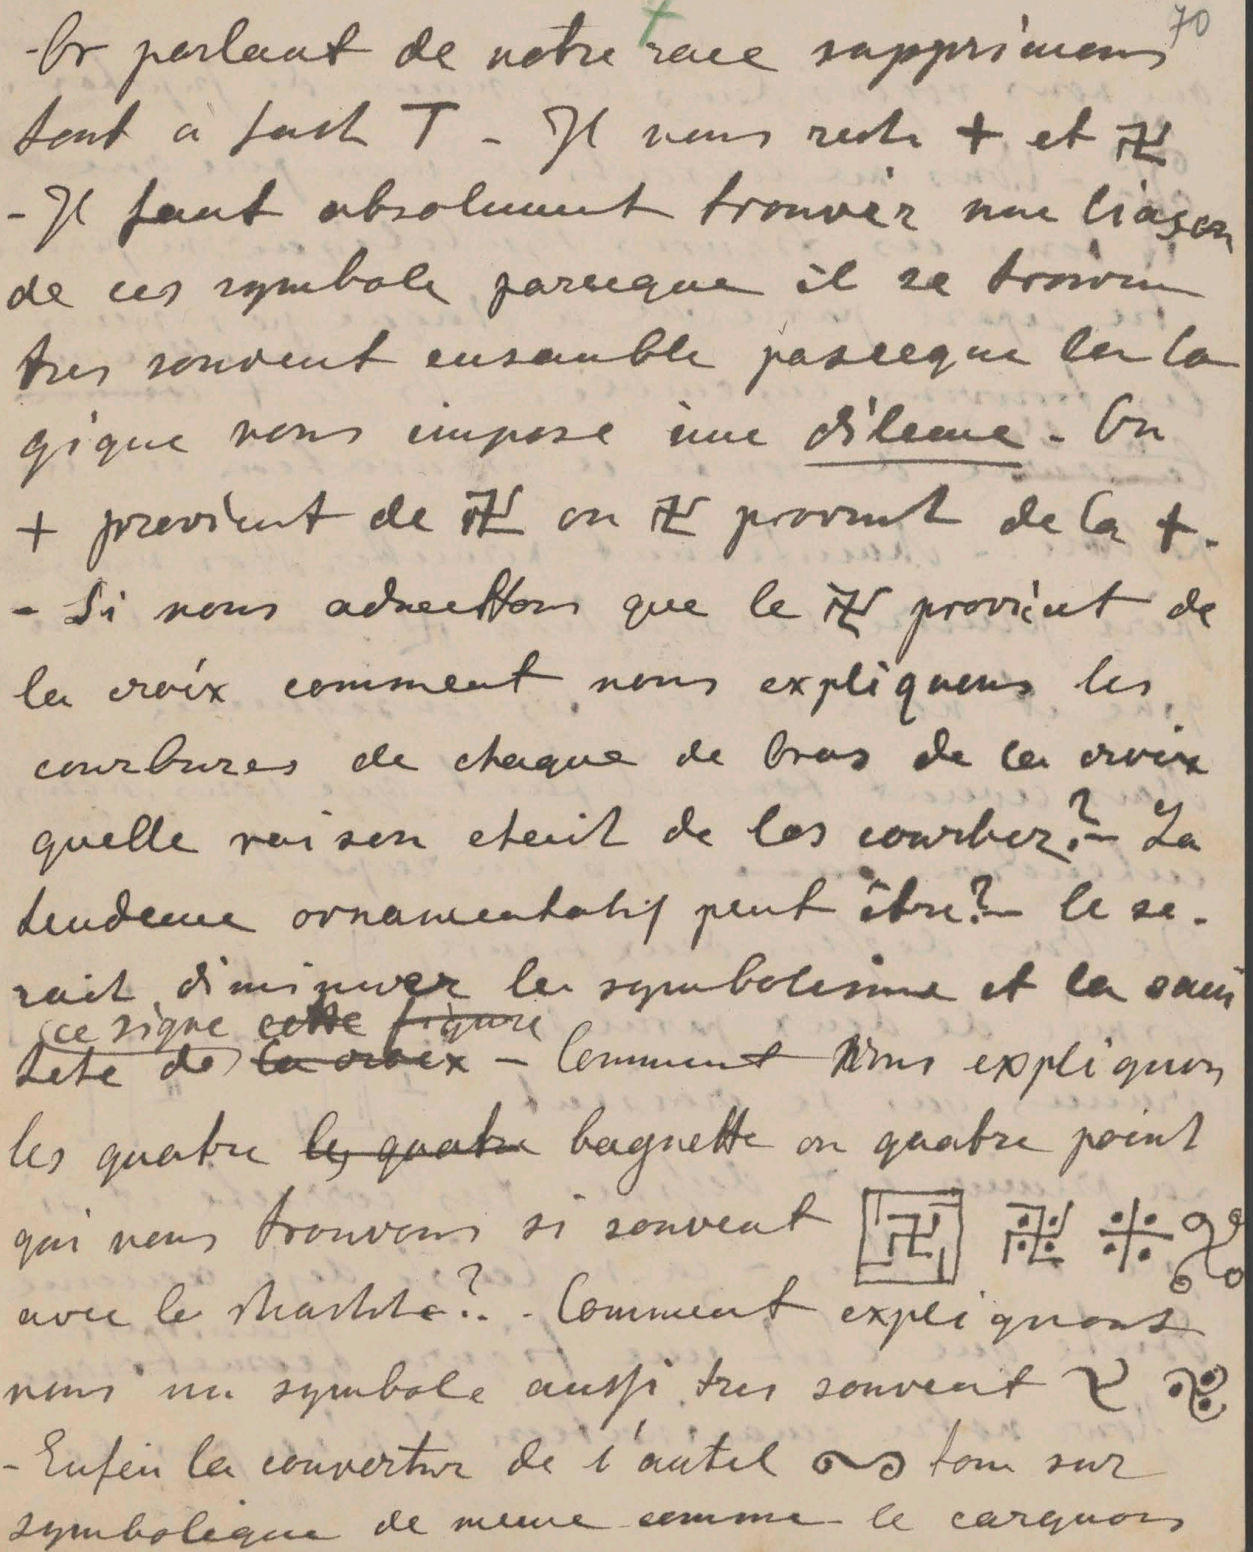 70
- Or parlant de notre race supprimons
tout a fait T - Il nous reste + et 卍
- Il faut absolument trouver une liason
de ces symbole parceque il se trouve
tres souvent ensemble parceque la lo
gique nous impose une dileme - Ou
+ provient de 卍 ou 卍 provient de la +.
- Si nous admettons que le 卍 provient de
la croix comment nous expliquons les
courbures de chaque de bras de la croix
quelle raison etait de les courber? - La
tendence ornamentatif peut être? - Ce se-
rait diminuer le symbolisme et la sain
ce signe cette figure
teté de la croix - Comment nous expliquons
les quatre les quatre bagnette ou quatre point
qui nous trouvons si souvent
avec le ? - Comment expliquons
nous un symbole aussi tres souvent
- Enfin la couvertur de l'autel sur
symbolique de meme comme le carquois